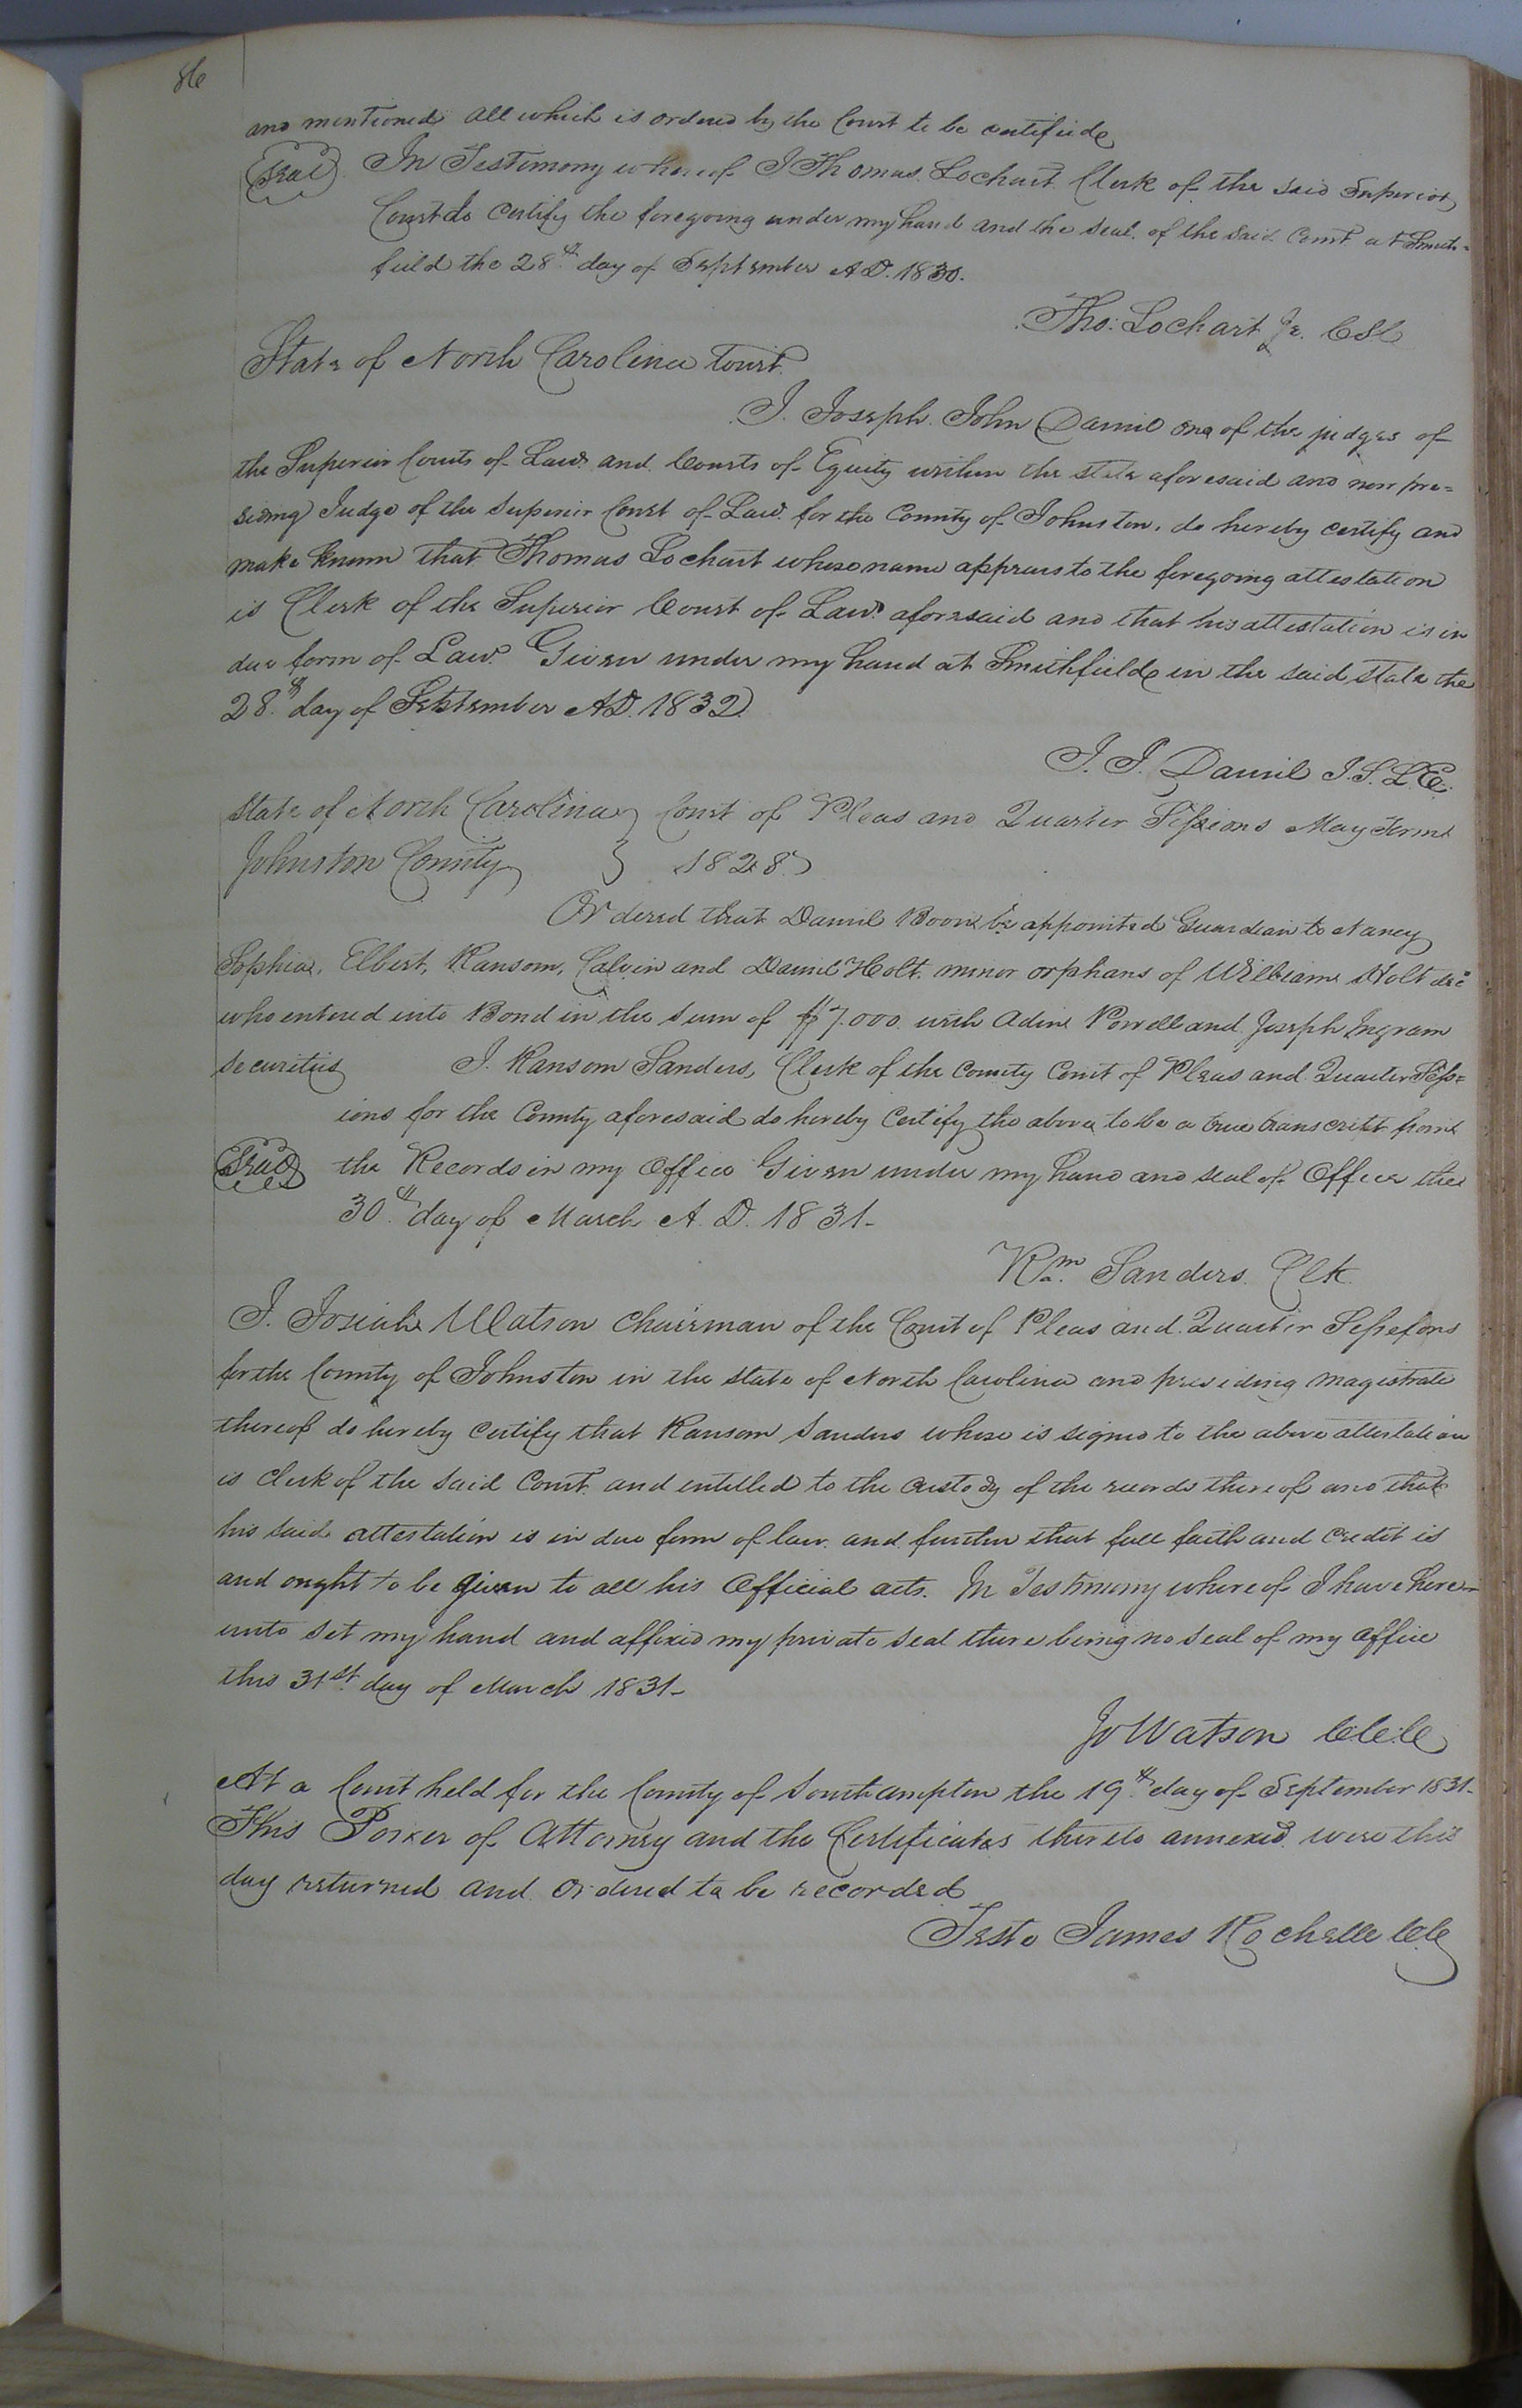 86
and mentioned all which is ordered by the Court to be certified
Seal In Testimony whereof I Thomas Lochart Clerk of the said Superior
Court do certify the foregoing under my hand and the seal of the said Court at Smith=
field the 28th day of September A.D. 1830.
Tho: Lochart Jr. CSC
State of North Carolina Towit
I. Joseph John Daniel one of the judges of
the Superior Courts of Law and Courts of Equity within the state aforesaid and now pre=
siding Judge of the Superior Court of Law for the County of Johnston, do hereby certify and
make known that Thomas Lochart whose name appears to the foregoing attestation
is Clerk of the Superior Court of Law aforesaid and that his attestation is in
due form of Law. Given under my hand at Smithfield in the said state the
28th day of September A.D. 1832
J. J. Daniel J.S.L.E.
State of North Carolina } Court of Pleas and Quarter Sessions May Term
Johnston County } 1828
Ordered that Daniel Boon be appointed Guardian to Nancy
Sophia, Elbert, Ransom, Calvin and Daniel Holt minor orphans of William Holt decd
who entered into Bond in the sum of $7.000 with Adin Powell and Joseph Ingram
securities I. Ransom Sanders, Clerk of the County Court of Pleas and Quarter Sess=
ions for the County aforesaid do hereby Certify the above to be a true transcript from
Seal the Records in my Office Given under my hand and seal of Office the
30th day of March A.D. 1831-
Rm. Sanders. Clk
I. Josiah Watson Chairman of the Court of Pleas and Quarter Sessions
for the County of Johnston in the state of North Carolina and presiding magistrate
thereof do hereby certify that Ransom Sanders whose is signed to the above attestation
is Clerk of the said Court and entitled to the custody of the records thereof and that
his said attestation is in due form of law and further that full faith and credit is
and ought to be given to all his Official acts. In Testimony whereof I have here-
unto set my hand and affixed my private seal there being no seal of my office
this 31st day of March 1831-
Jo Watson
At a Court held for the County of Southampton the 19th day of September 1831-
This Power of Attorney and the Certificates thereto annexed were this
day returned and ordered to be recorded
Teste James Rochelle CC